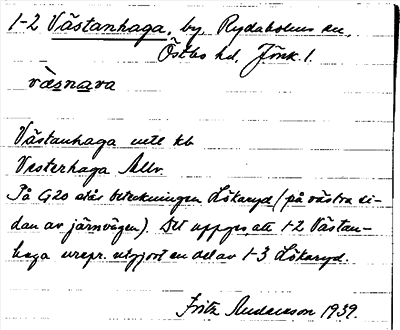 1-2 Västanhaga, by, Rydaholms sn,
Östbo hd, Jönk. l.
väsnava
Västanhaga
Västerhaga Allv.
På G20 står beteckningen Lökaryd (på västra si-
dan av järnvägen). Det uppges, att 1-2 Västan-
haga urspr. utgjort en del av 1-3 Lökaryd.
Fritz Andersson 1939.